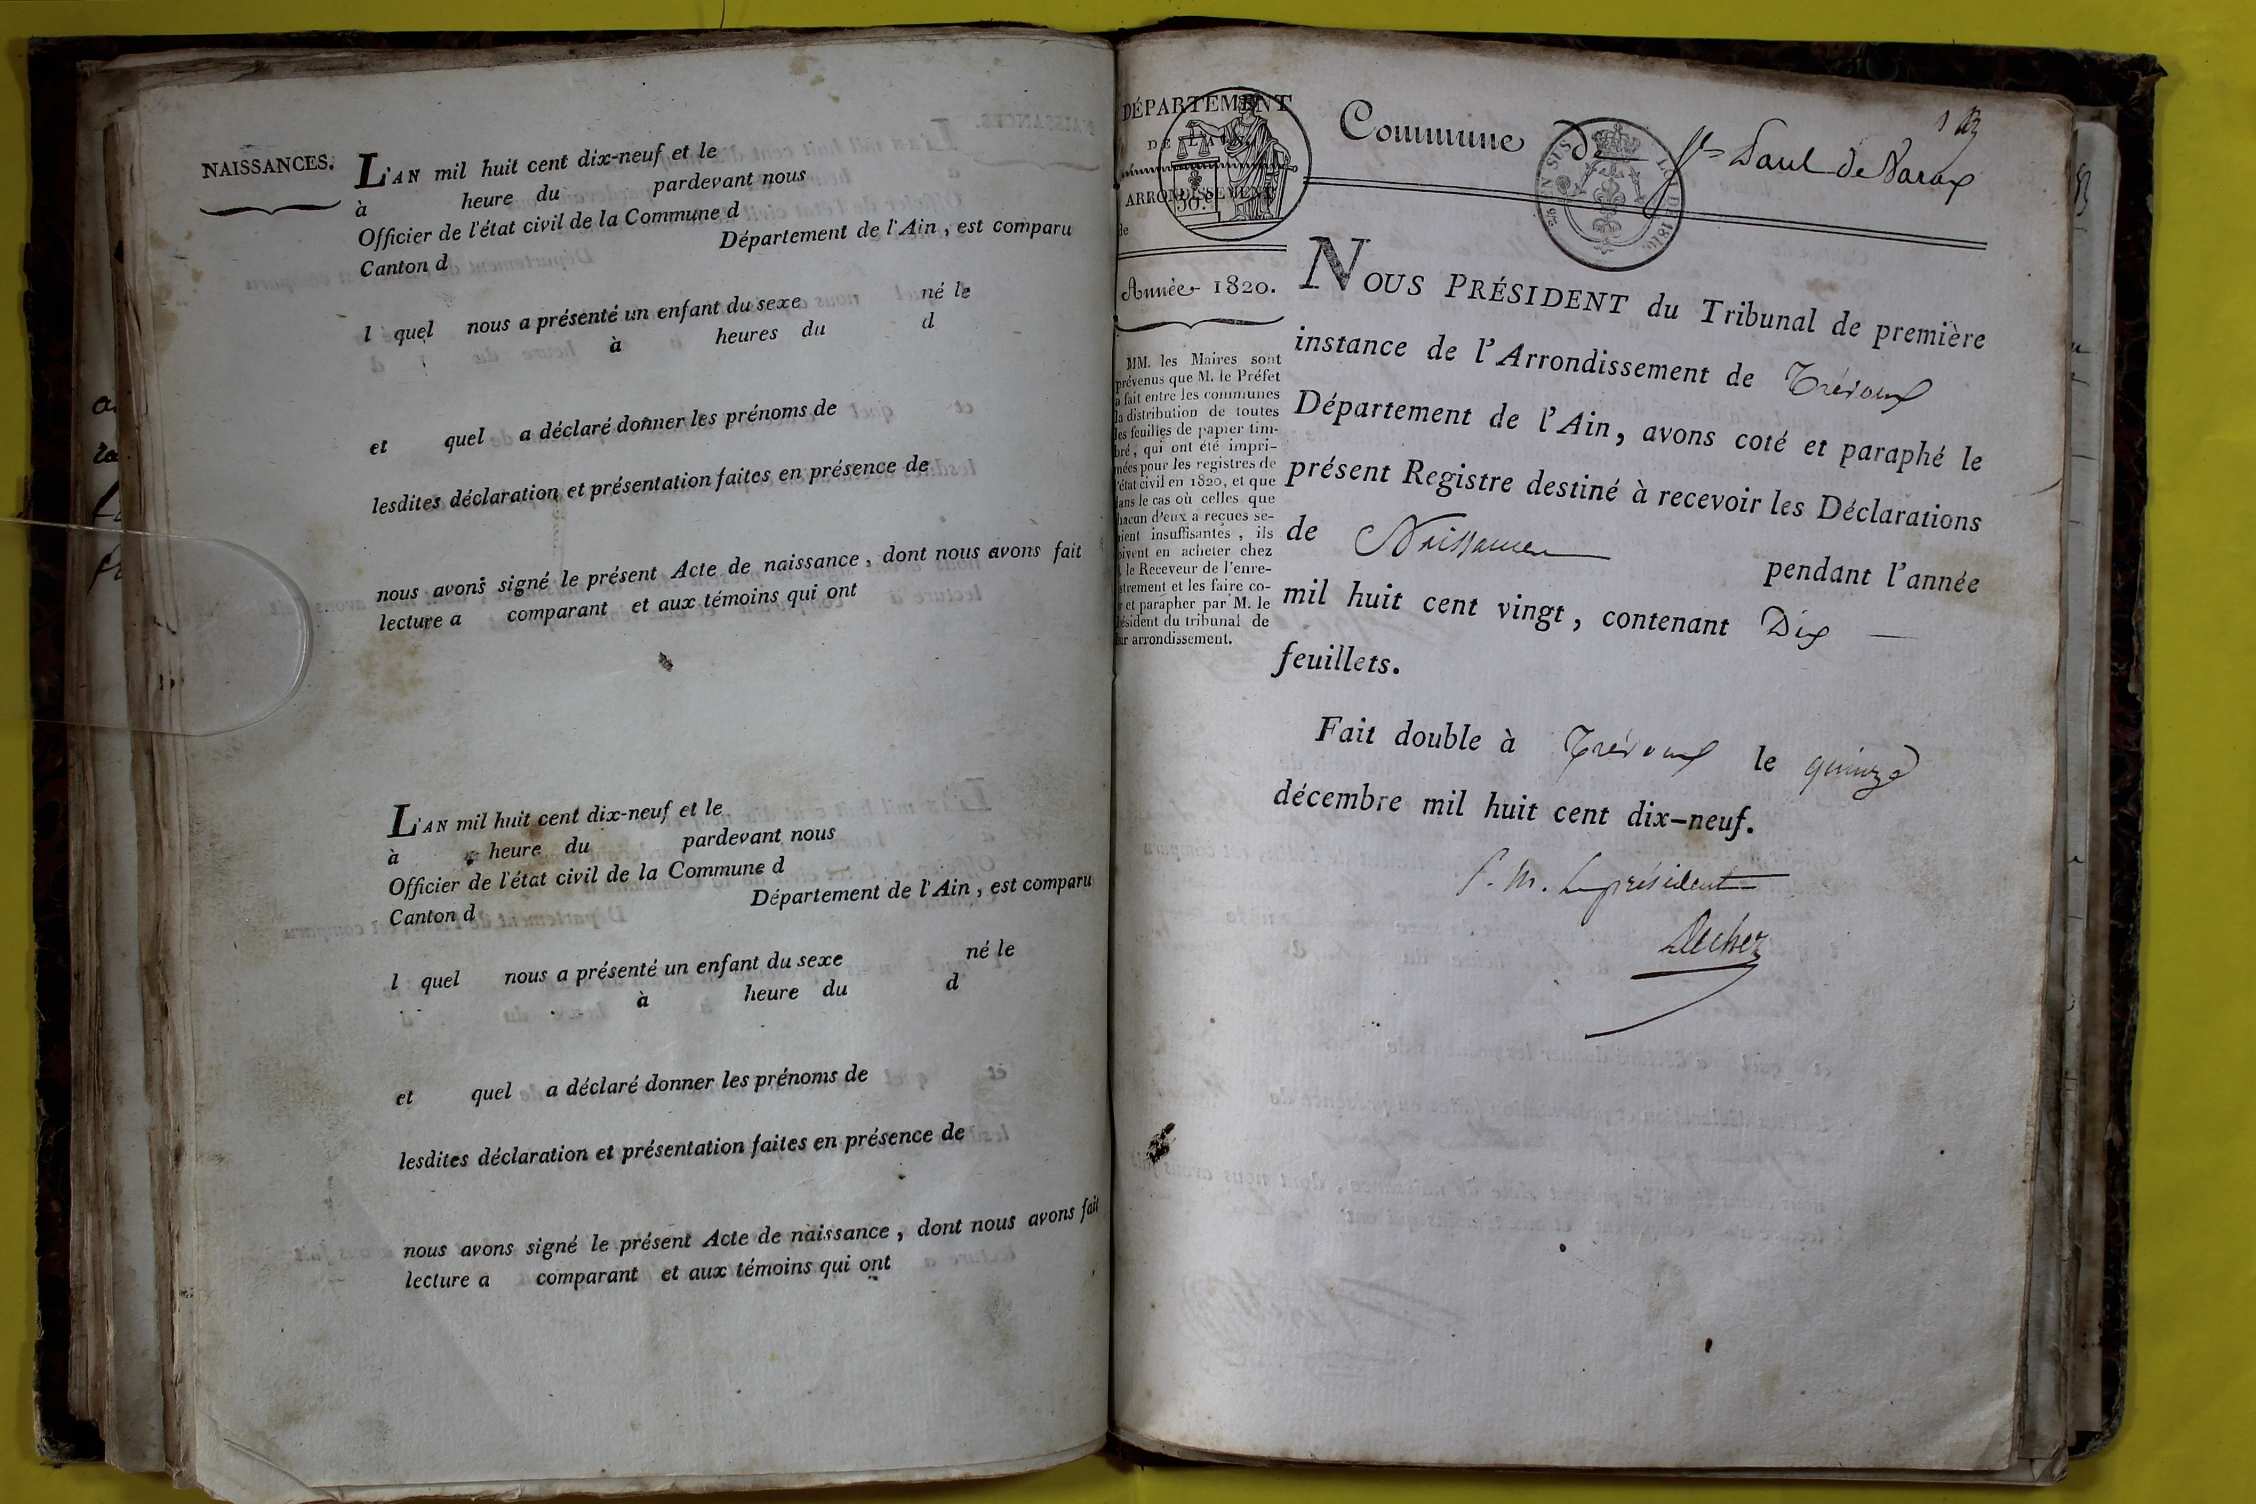 NAISSANCES.
L'AN mil huit cent dix-neuf et le
à heure du pardevant nous
Officier de l'état civil de la Commune d
Canton d Département de l'Ain, est comparu
l quel nous a présenté un enfant du sexe né le
à heures du d
et quel a déclaré donner les prénoms de
lesdites déclaration et présentation faites en présence de
nous avons signé le présent Acte de naissance, dont nous avons fait
lecture a comparant et aux témoins qui ont
L'AN mil huit cent dix-neuf et le
à heure du pardevant nous
Officier de l'état civil de la Commune d
Canton d Département de l'Ain, est comparu
l quel nous a présenté un enfant du sexe né le
à heure du d
et quel a déclaré donner les prénoms de
lesdites déclaration et présentation faites en présence de
nous avons signé le présent Acte de naissance, dont nous avons fait
lecture a comparant et aux témoins qui ont
DÉPARTEMENT
DE L'AIN
ARRONDISSEMENT
de
Année 1820.
MM. les Maires sont
prévenus que M. le Préfet
a fait entre les communes
la distribution de toutes
les feuilles de papier tim-
bré, qui ont été impri-
mées pour les registres de
l'état civil en 1820, et que
dans le cas où celles que
chacun d'eux a reçues se-
roient insuffisantes, ils
doivent en acheter chez
le Receveur de l'enre-
gistrement et les faire co-
ter et parapher par M. le
Président du tribunal de
leur arrondissement.
Commune de St Paul de Varax
NOUS PRÉSIDENT du Tribunal de première
instance de l'Arrondissement de Trévoux
Département de l'Ain, avons coté et paraphé le
présent Registre destiné à recevoir les Déclarations
de Naissances pendant l'année
mil huit cent vingt, contenant Dix
feuillets.
Fait double à Trévoux le quinze
décembre mil huit cent dix-neuf.
Le président